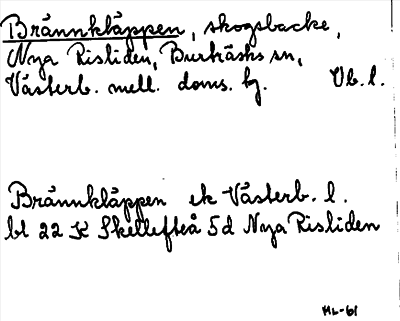 Brännkläppen, skogsbacke,
Nya Risliden, Burträsks sn,
Västerb. mell. doms. hg. Vb. l.
Brännkläppen ek Västerb. l.
bl 22 K Skellefteå 5d Nya Risliden
HL-61